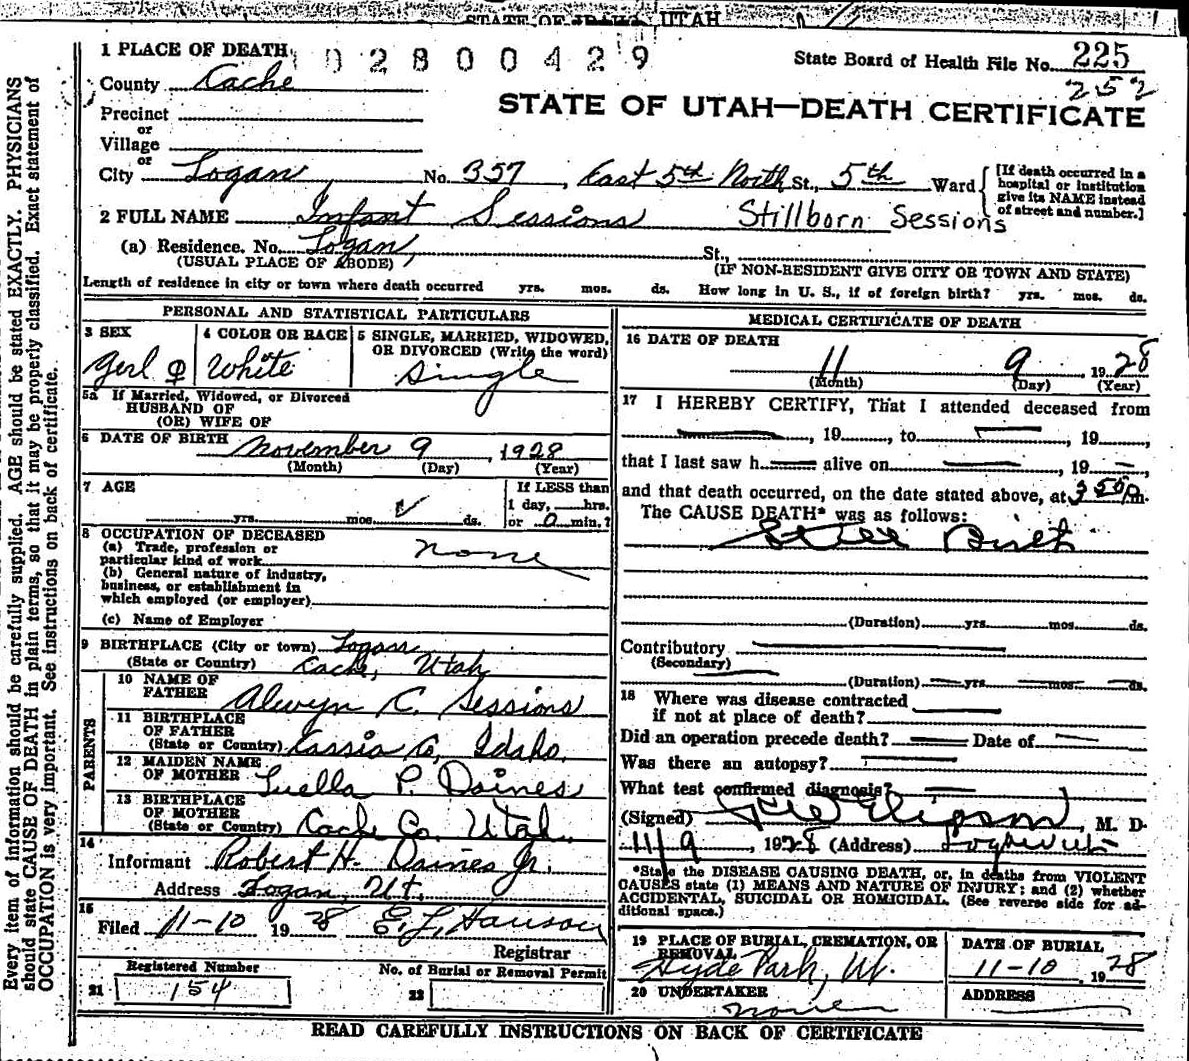 STATE OF IDAHO UTAH
1 PLACE OF DEATH 02800429
State Board of Health File No. 225
252
County Cache
STATE OF UTAH—DEATH CERTIFICATE
Precinct
or
Village
or
City Logan No. 357, East 5th North St., 5th Ward
[If death occurred in a
hospital or institution
give its NAME instead
of street and number.]
2 FULL NAME Infant Sessions Stillborn Sessions
(a) Residence. No. Logan St.,
(USUAL PLACE OF ABODE) (IF NON-RESIDENT GIVE CITY OR TOWN AND STATE)
Length of residence in city or town where death occurred yrs. mos. ds. How long in U. S., if of foreign birth? yrs. mos. ds.
PERSONAL AND STATISTICAL PARTICULARS
3 SEX
Gerl ♀
4 COLOR OR RACE
White
5 SINGLE, MARRIED, WIDOWED,
OR DIVORCED (Write the word)
Single
5a If Married, Widowed, or Divorced
HUSBAND OF
(OR) WIFE OF
6 DATE OF BIRTH November 9, 1928
(Month) (Day) (Year)
7 AGE
yrs. mos. ds.
If LESS than
1 day, hrs.
or 0 min.?
8 OCCUPATION OF DECEASED
(a) Trade, profession or
particular kind of work none
(b) General nature of industry,
business, or establishment in
which employed (or employer)
(c) Name of Employer
9 BIRTHPLACE (City or town) Logan
(State or Country) Cache, Utah
PARENTS
10 NAME OF
FATHER Alwyn C. Sessions
11 BIRTHPLACE
OF FATHER
(State or Country) Cassia Co, Idaho.
12 MAIDEN NAME
OF MOTHER Luella P. Daines
13 BIRTHPLACE
OF MOTHER
(State or Country) Cache Co. Utah.
14
Informant Robert H. Daines Jr.
Address Logan, Ut.
15
Filed 11-10 1928 E. L. Hanson
Registrar
Registered Number
21 154
No. of Burial or Removal Permit
22
MEDICAL CERTIFICATE OF DEATH
16 DATE OF DEATH
11 9 1928
(Month) (Day) (Year)
17 I HEREBY CERTIFY, That I attended deceased from
, 19 , to , 19 ,
that I last saw h alive on , 19 ,
and that death occurred, on the date stated above, at 3 50 P m.
The CAUSE DEATH* was as follows:
Still Birth
(Duration) yrs mos. ds.
Contributory
(Secondary)
(Duration) yrs mos. ds.
18 Where was disease contracted
if not at place of death?
Did an operation precede death? Date of
Was there an autopsy?
What test confirmed diagnosis?
(Signed) , M. D.
11/9, 1928 (Address)
*State the DISEASE CAUSING DEATH, or, in deaths from VIOLENT
CAUSES state (1) MEANS AND NATURE OF INJURY; and (2) whether
ACCIDENTAL, SUICIDAL OR HOMICIDAL. (See reverse side for ad-
ditional space.)
19 PLACE OF BURIAL, CREMATION, OR
REMOVAL
Hyde Park, Ut.
DATE OF BURIAL
11-10 1928
20 UNDERTAKER
none
ADDRESS
READ CAREFULLY INSTRUCTIONS ON BACK OF CERTIFICATE
Every item of information should be carefully supplied. AGE should be stated EXACTLY. PHYSICIANS
should state CAUSE OF DEATH in plain terms, so that it may be properly classified. Exact statement of
OCCUPATION is very important. See instructions on back of certificate.